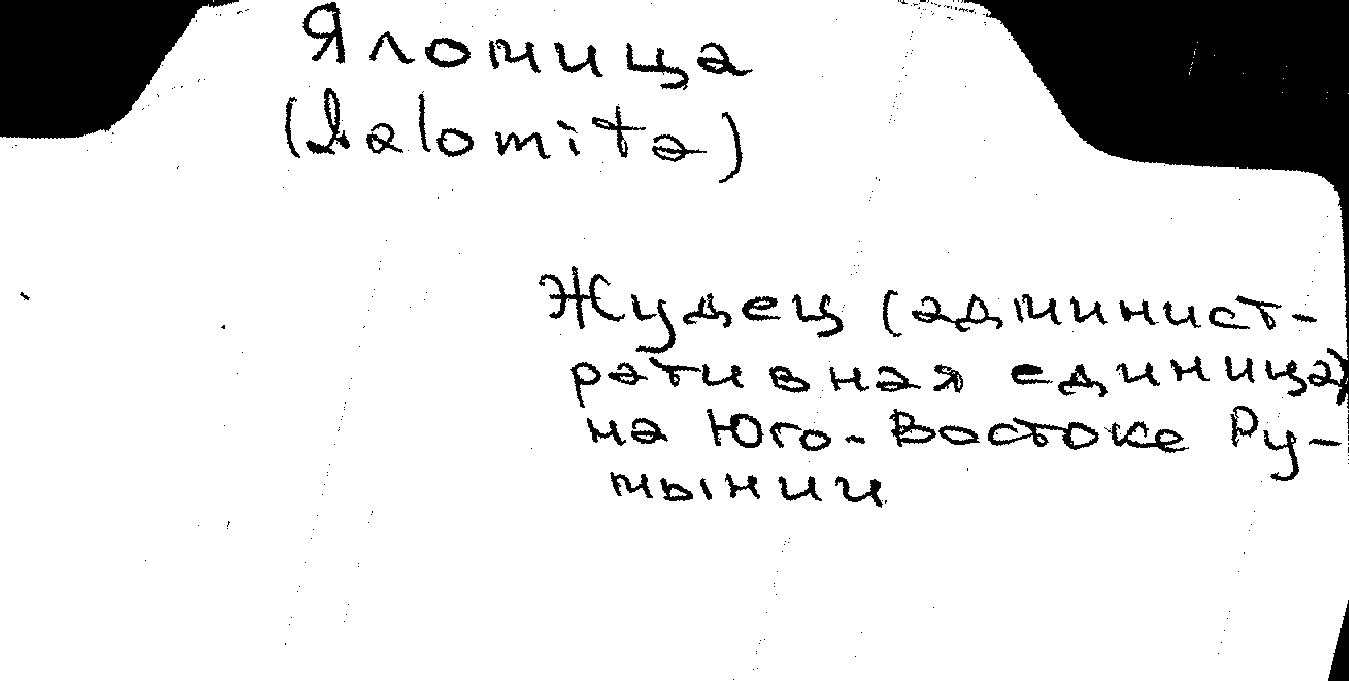 Яломица
(Ialomita)
Жудец (админист-
ративная единица)
на Юго-Востоке Ру-
мынии